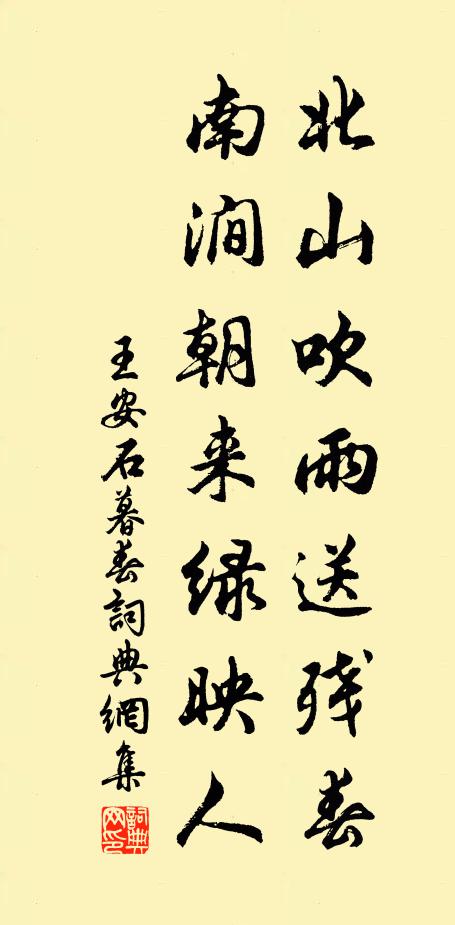 北山吹雨送残春
南涧朝来绿映人
王安石暮春詞典網集
詞典网印